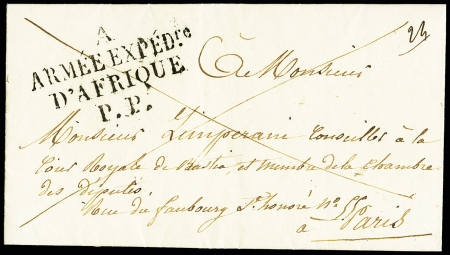 A
ARMÉE EXPÉDre
D'AFRIQUE
P.P.
24
A Monsieur
Monsieur Limperani Conseiller à la
Cour Royale de Bastia, et membre de la Chambre
des Députés,
Rue du faubourg St. honoré No.
à Paris